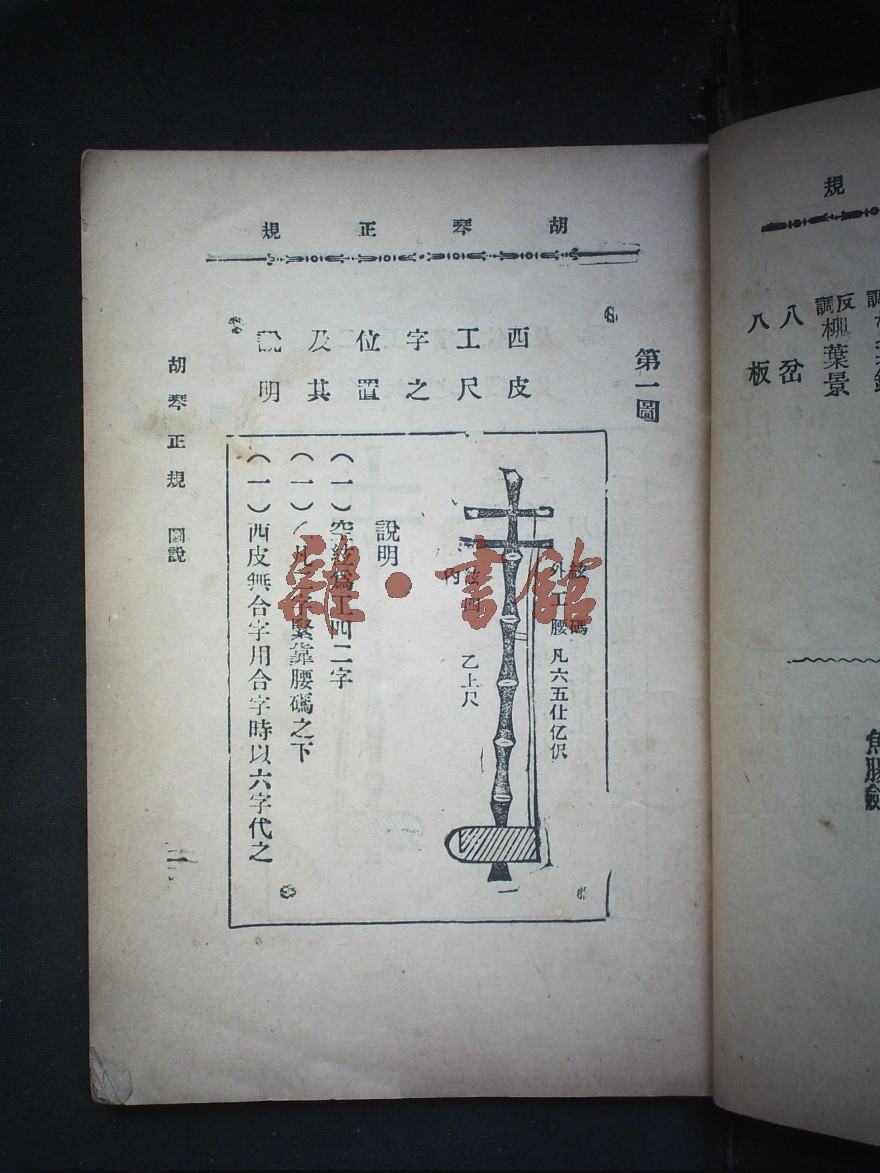 胡琴正規
第一圖
西皮
工尺
字之
位置
及其
說明
絃碼
外工腰凡六五仕亿伬
內絃四
乙上尺
說明
(一)空絃為工四二字
(一)乙凡二字緊靠腰碼之下
(一)西皮無合字用合字時以六字代之
胡琴正規 圖說
規
反調柳葉景
八岔
八板
魚腸劍
雜·書館